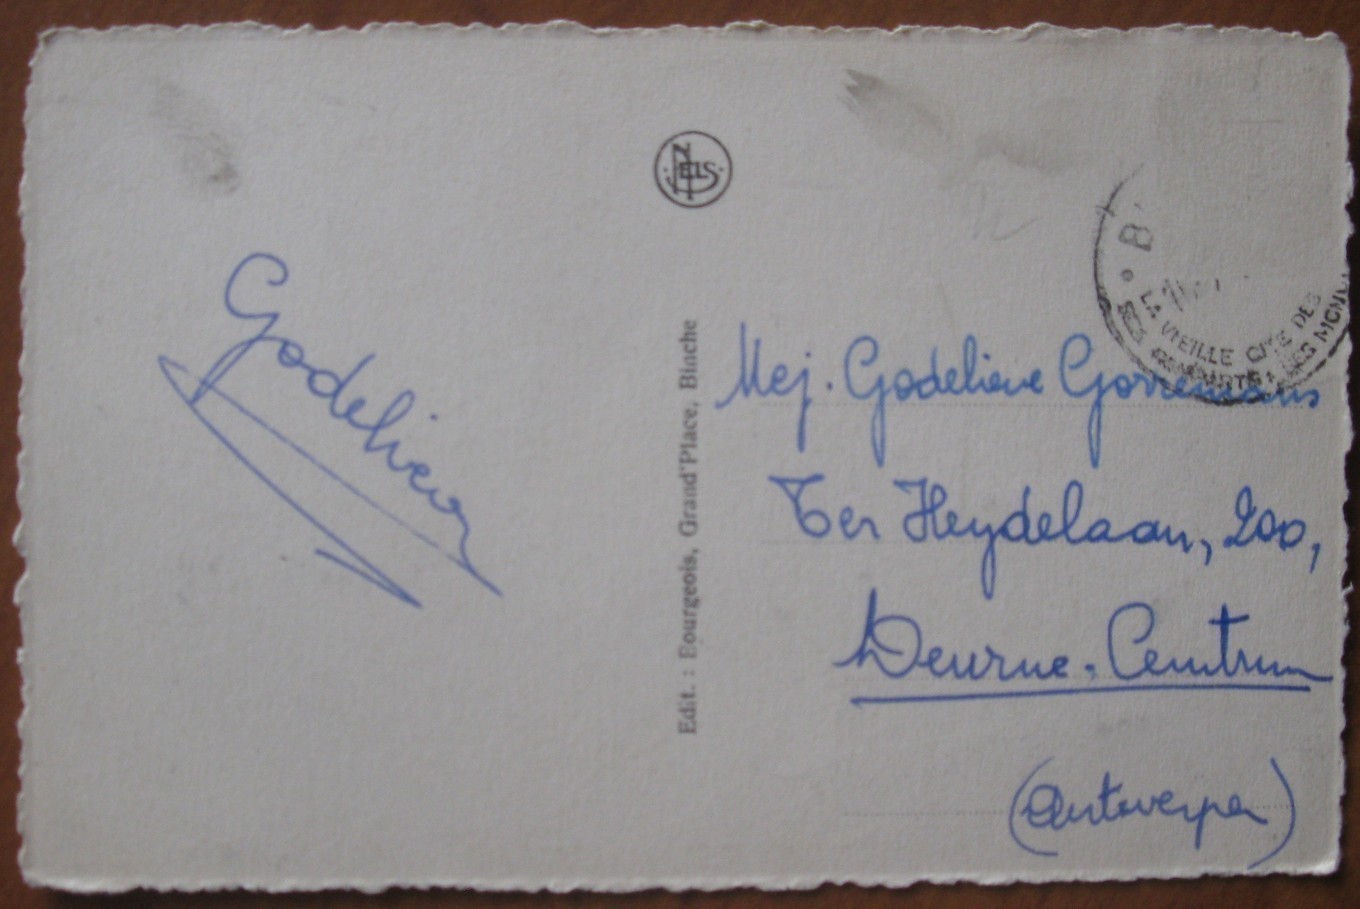 Godelieve
NELS
Edit. : Bourgeois, Grand'Place, Binche
B
LA VIEILLE CITE DES
SES REMPARTS
Mej. Godelieve Gorremans
Ter Heydelaan, 200,
Deurne-Centrum
(Antwerpen)